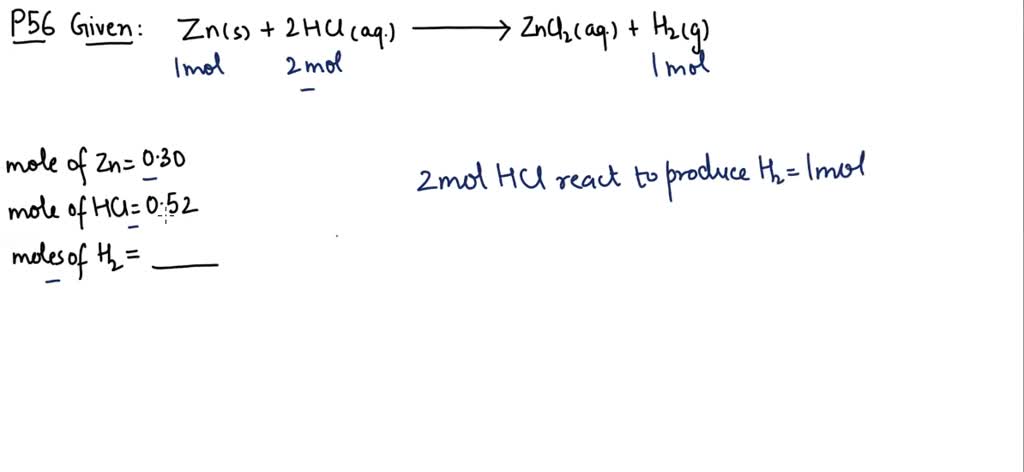 P56 Given: Zn(s) + 2HCl(aq.) ⟶ ZnCl₂(aq.) + H₂(g)
1mol 2mol 1mol
mole of Zn = 0.30
2mol HCl react to produce H₂ = 1mol
mole of HCl = 0.52
moles of H₂ = ____